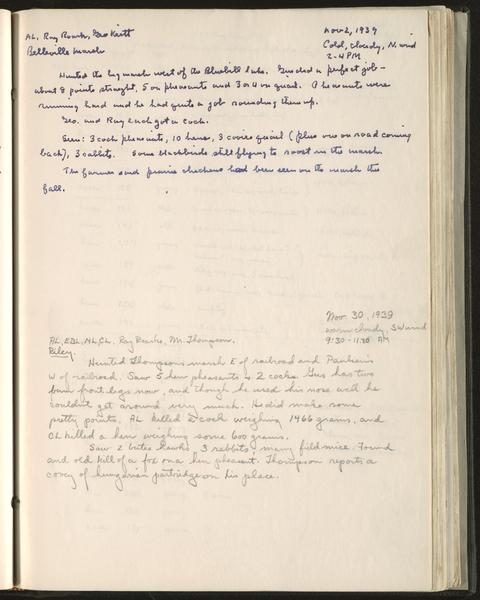 AL, Ray Roark, Geo Keitt
Nov 2, 1939
Belleville Marsh
Cold, cloudy, N. wind
2-4 PM
Hunted the big marsh west of the Bluebill lake. Gus did a perfect job -
about 8 points straight, 5 on pheasants and 3 or 4 on quail. Pheasants were
running hard and he had quite a job rounding them up.
Geo. and Ray each got a cock.
Seen: 3 cock pheasants, 10 hens, 3 covies quail (plus one on road coming
back), 3 rabbits. Some blackbirds still flying to roost in the marsh.
The farmer said prairie chickens had been seen on the marsh this
fall.
Nov. 30, 1939
warm cloudy, SW wind
9:30 - 11:30 AM
AL, EBL, NL, CL, Ray Roark, Mr. Thompson.
Riley.
Hunted Thompson's marsh E of railroad and
W of railroad. Saw 5 hen pheasants & 2 cocks. Gus has two
bum front legs now, and though he used his nose well he
couldn't get around very much. He did make some
pretty points. AL killed a cock weighing 1466 grams, and
CL killed a hen weighing some 600 grams.
Saw 2 buteo hawks, 3 rabbits, many field mice. Found
and old kill of a fox on a hen pheasant. Thompson reports a
covey of hungarian partridge on his place.